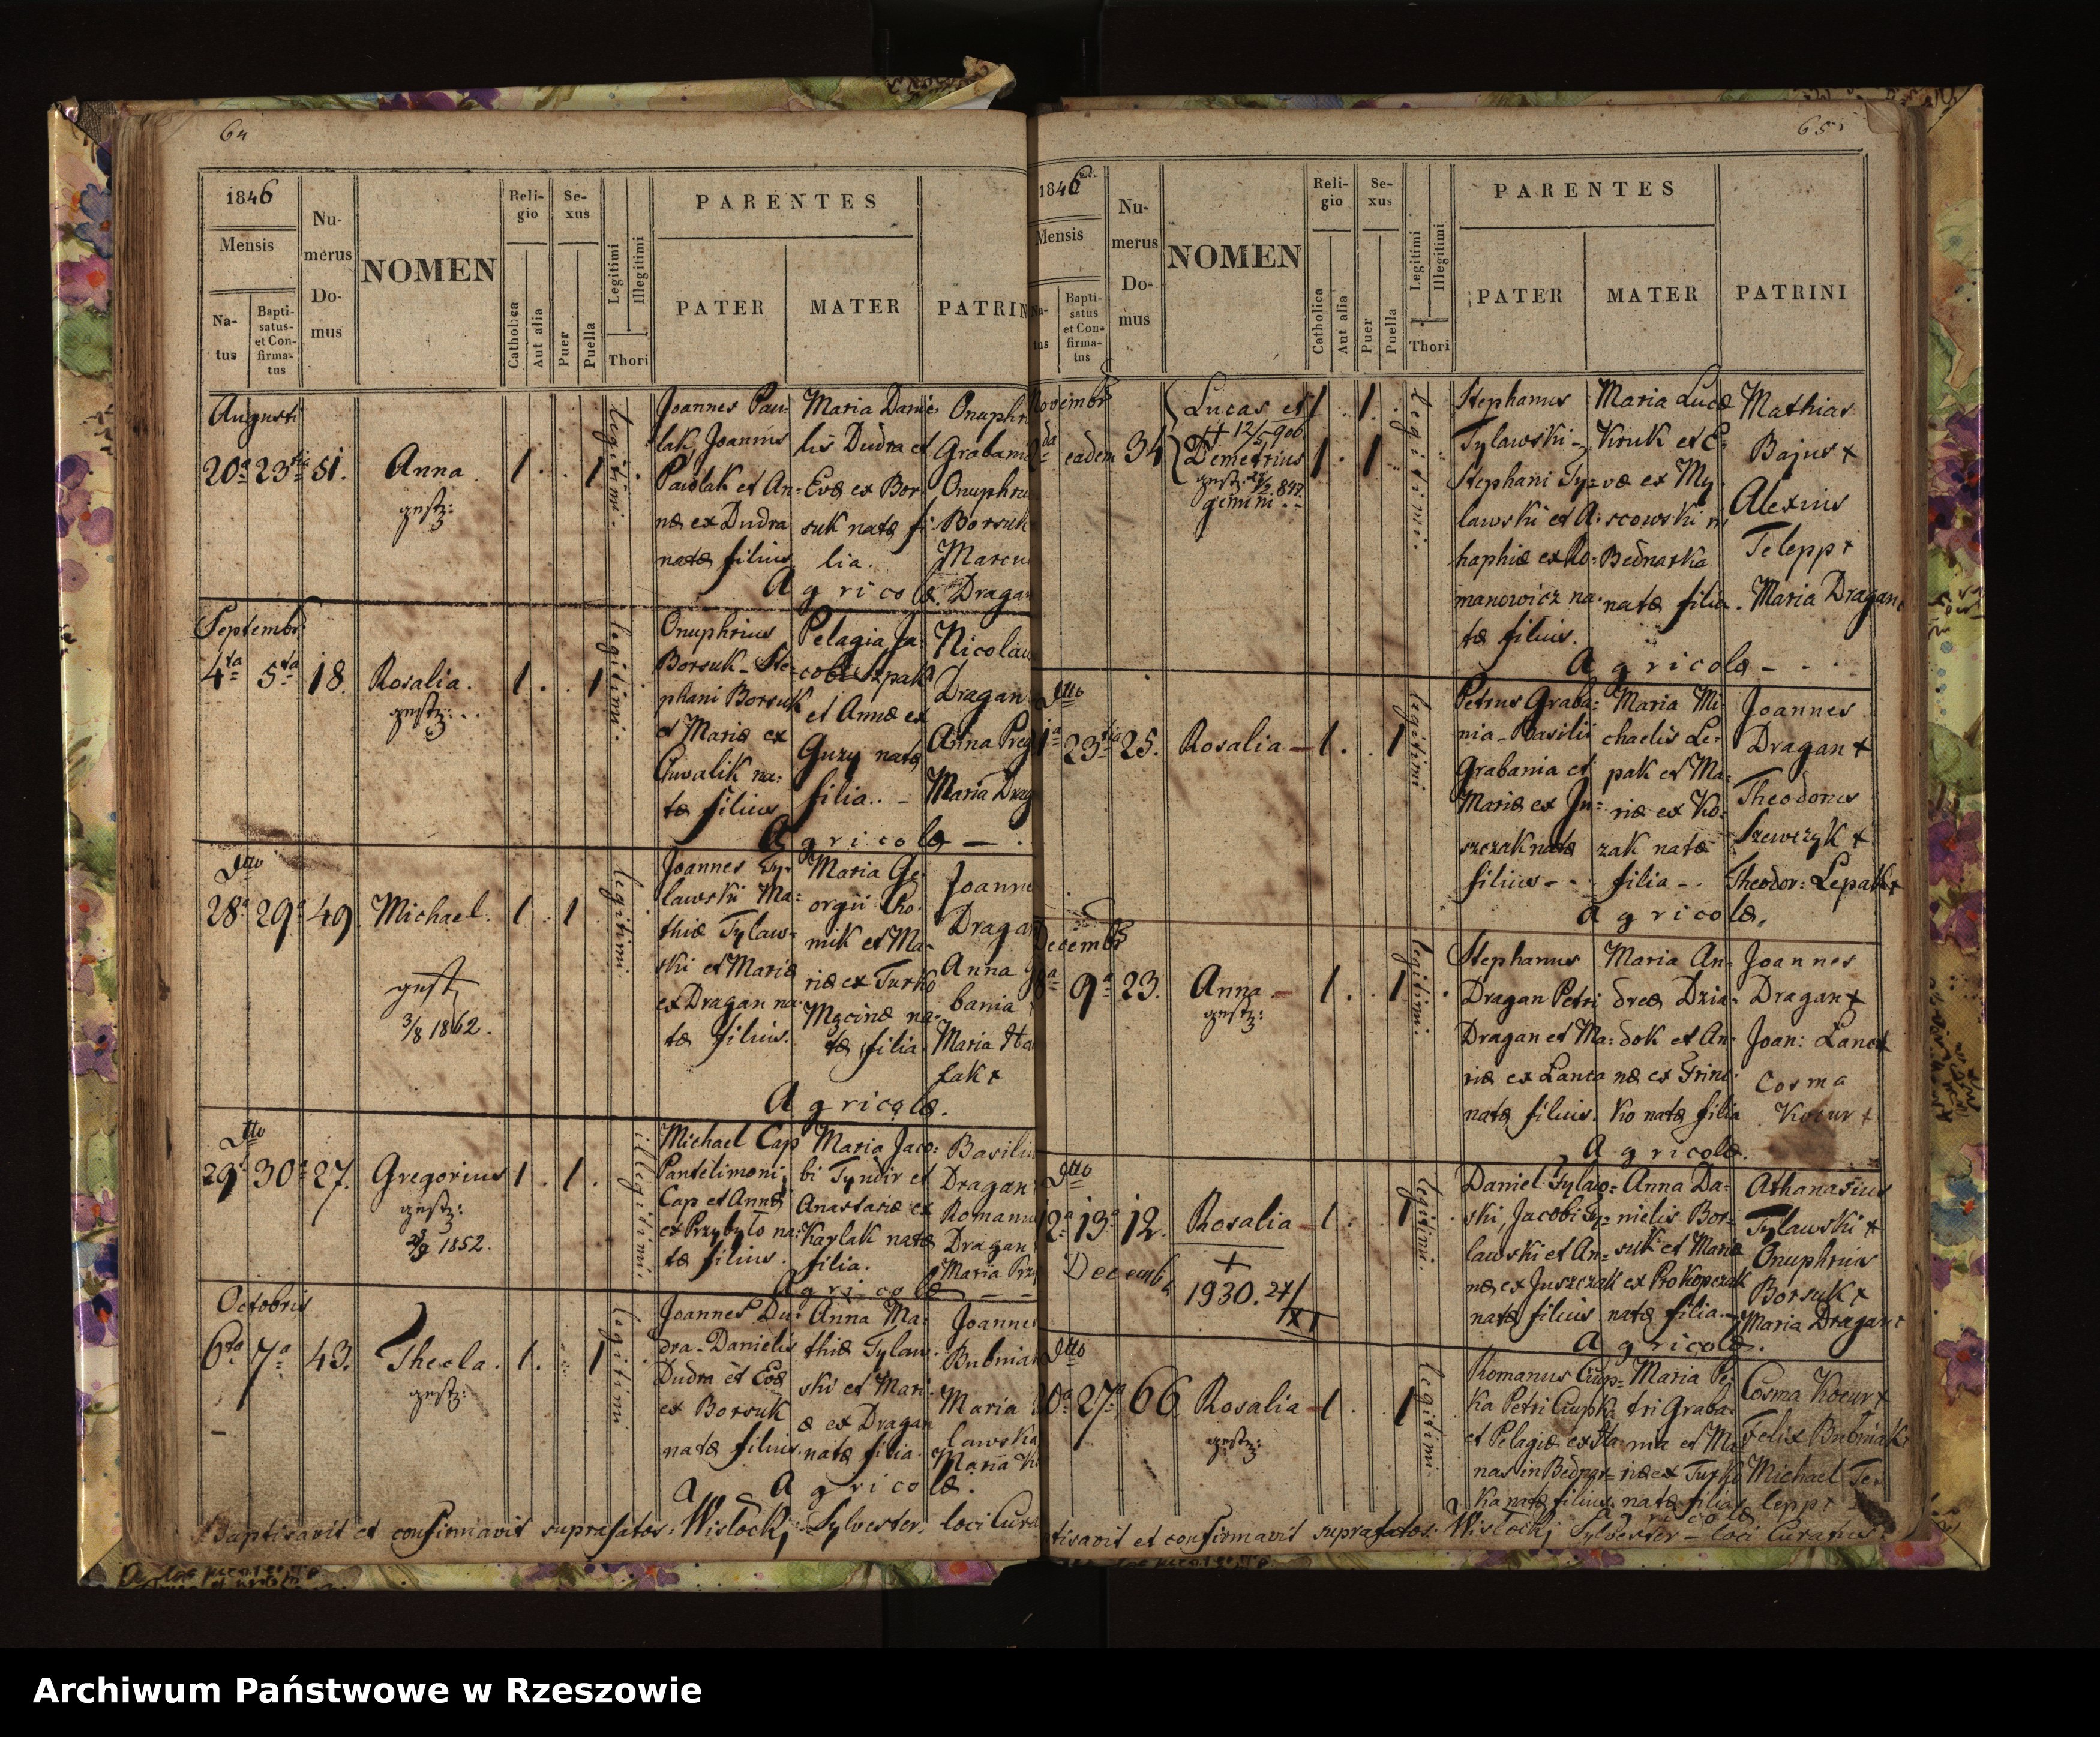 64
1846
Mensis
Na-
tus
Bapti-
satus-
et Con-
firma-
tus
Nu-
merus
Do-
mus
NOMEN
Reli-
gio
Catholica
Aut alia
Se-
xus
Puer
Puella
Legitimi
Illegitimi
Thori
PARENTES
PATER
MATER
PATRIN
Augusti
20a 23tia 51.
Anna
gest:
1 . . 1
legitimi.
Joannes Paw-
lak, Joannis
Pawlak et An-
næ ex Dudra
natæ filius
Maria Danie-
lis Dudra et
Evæ ex Bor-
suk natæ fi-
lia.
Onuphr
Grabani
Onuphri
Borsuk
Marcu
Dragan
Agricolæ.
Septembr
4ta 5ta 18.
Rosalia.
gest:
1 . . 1
legitimi.
Onuphrius
Borsuk - Ste-
phani Borsuk
et Mariæ ex
Cuvalik na-
tæ filius
Pelagia Ja-
cobi Szpak
et Annæ ex
Guzy natæ
filia..
Nicolau
Dragan
Anna
Maria Drag
Agricolæ
Dtto
28a 29a 49
Michael.
gest
3/8 1862.
1 . 1
legitimi
Joannes Ty-
lawski Ma-
thiæ Tylaw-
ski et Mariæ
ex Dragan na-
tæ filius.
Maria Ge-
orgii Ho-
mik et Ma-
riæ ex Turko
natæ filia
Joanne
Dragan
Anna
bania
Maria
Agricolæ.
Dtto
29a 30a 27.
Gregorius
gest:
1852.
1 . 1 .
illegitimi.
Michael Cap
Pantelimoni
Cap et Annæ
ex Przybyło na-
tæ filius.
Maria Jaco-
bi Tyndir et
Anastasiæ ex
Karlak natæ
filia.
Basiliu
Dragan
Romanu
Dragan
Maria
Agricolæ
Octobris
6ta 7a 43.
Thecla.
gest:
1 . . 1
legitimi
Joannes Du-
dra - Danielis
Dudra et Evæ
ex Borsuk
natæ filius.
Anna Ma-
thiæ Tylaw-
ski et Mari-
æ ex Dragan
natæ filia.
Joannes
Bubnia
Maria
lawska
Maria
Agricolæ.
Baptisavit et confirmavit suprafatos: Wisłockj Sylvester. loci Cura
65
1846
Mensis
Na-
tus
Bapti-
satus
et Con-
firma-
tus
Nu-
merus
Do-
mus
NOMEN
Reli-
gio
Catholica
Aut alia
Se-
xus
Puer
Puella
Legitimi
Illegitimi
Thori
PARENTES
PATER
MATER
PATRINI
Novembr
eadem 34
Lucas et
Demetrius
gemini
1 . 1 .
1 . 1
legitimi.
Stephanus
Tylawski -
Stephani Ty-
lawski et A-
haphiæ ex Ro-
manowicz na-
tæ filius.
Maria Lucæ
Kruk et E-
væ ex My-
scowski
Bednarka
natæ filia.
Mathias
Bajus +
Alexius
Telepp +
Maria Dragan
Agricolæ
Dtto
23tia 25.
Rosalia
1 . . 1
legitimi
Petrus Graba-
nia - Basilii
Grabania et
Mariæ ex Ju-
szczak natæ
filius
Maria Mi-
chaelis Le-
pak et Ma-
riæ ex Ko-
zak natæ
filia
Joannes
Dragan +
Theodorus
Szewczyk +
Theodor: Lepak +
Agricolæ.
Decembr
8a 9a 23.
Anna
gest:
1 . . 1
legitimi.
Stephanus
Dragan Petri
Dragan et Ma-
riæ ex Lanca
natæ filius.
Maria An-
dreæ Dzia-
dok et An-
næ ex Frinc-
ko natæ filia
Joannes
Dragan +
Joan:
Cosma
Kocur +
Agricolæ.
Dtto
12a 13a 12.
Decemb
Rosalia
+
1930. 24/
IXI
1 . 1
legitimi.
Daniel Tylaw-
ski, Jacobi Ty-
lawski et An-
næ ex Juszczak
natæ filius
Anna Da-
nielis Bor-
suk et Mariæ
ex Prokopczak
natæ filia.
Athanasius
Tylawski +
Onuphrius
Borsuk +
Maria Dragan +
Agricolæ.
Dtto
20a 27a 66
Rosalia
gest:
1 . . 1
legitimi.
Romanus Ciup-
ka Petri Ciupka
et Pelagiæ
natæ filius
Maria Pe-
tri Graba-
nia et Ma-
riæ ex Turko
natæ filia
Cosma Kocur +
Felix Bubniak
Michael Te-
lepp +
Agricolæ
tisavit et confirmavit suprafatos: Wisłockj Sylvester - loci Curatus.
Archiwum Państwowe w Rzeszowie